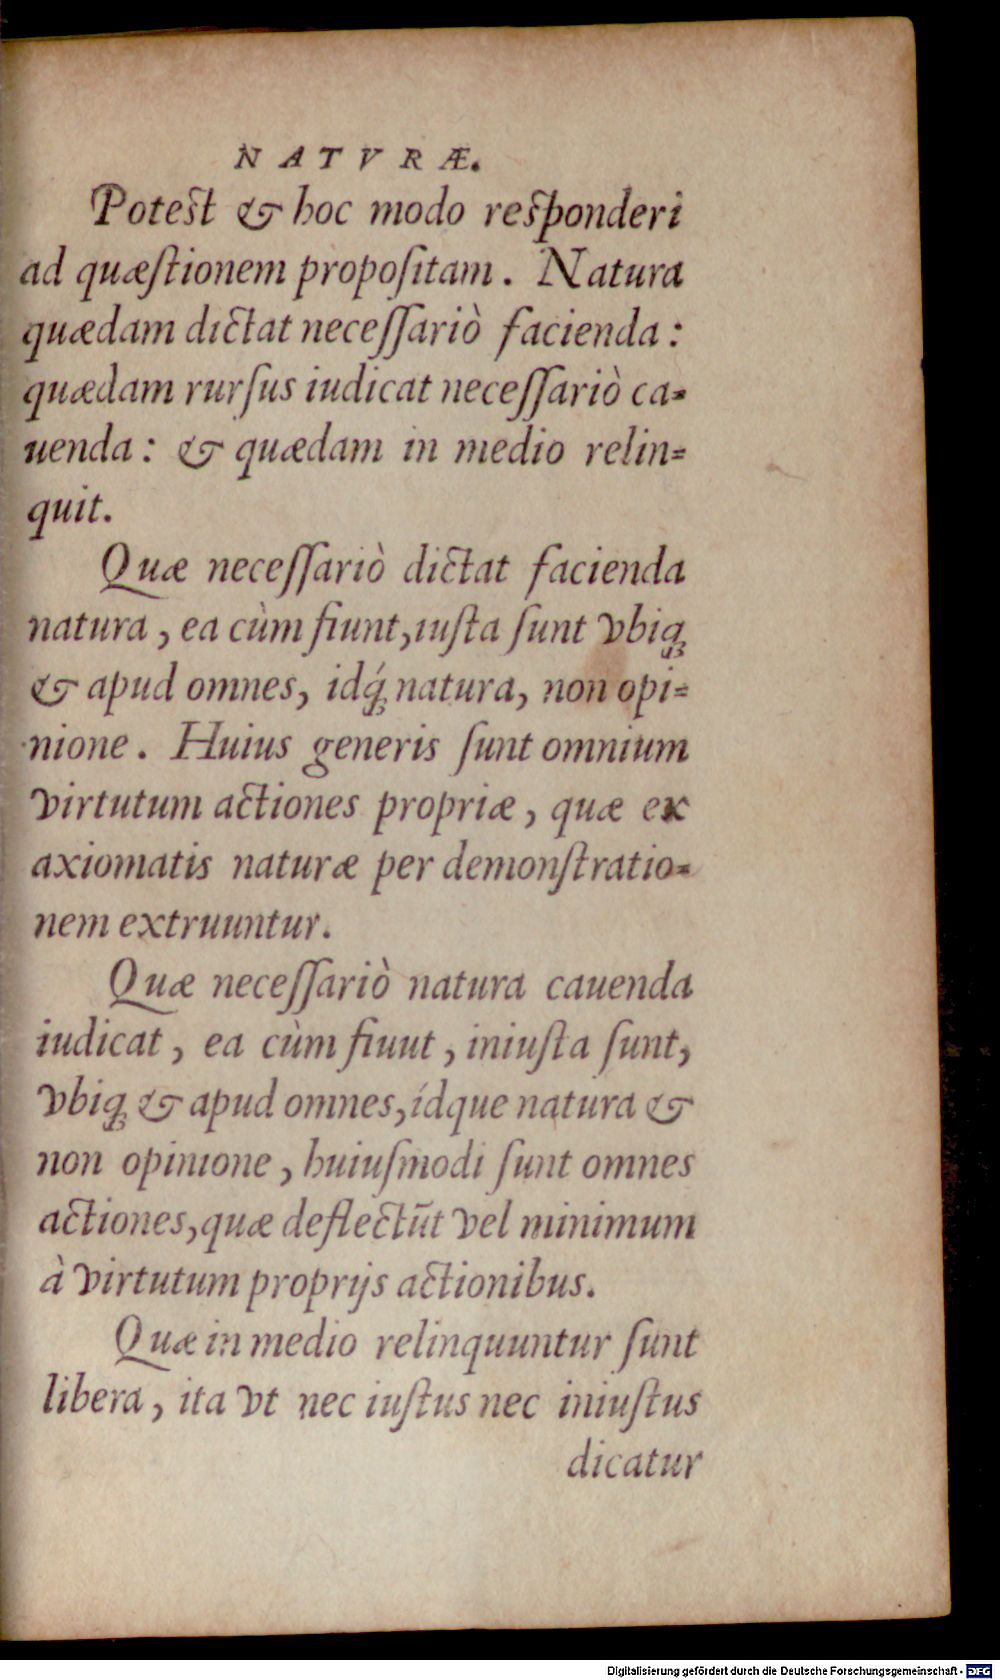 NATVRÆ.
Potest & hoc modo responderi
ad quæſtionem propoſitam. Natura
quædam dictat neceſſariò facienda:
quædam rurſus iudicat neceſſariò ca-
uenda: & quædam in medio relin-
quit.
Quæ neceſſariò dictat facienda
natura, ea cùm fiunt, iuſta ſunt vbiq;
& apud omnes, idq́; natura, non opi-
nione. Huius generis ſunt omnium
virtutum actiones propriæ, quæ ex
axiomatis naturæ per demonſtratio-
nem extruuntur.
Quæ neceſſariò natura cauenda
iudicat, ea cùm fiuut, iniuſta ſunt,
vbiq; & apud omnes, ídque natura &
non opinione, huiuſmodi ſunt omnes
actiones, quæ deflectũt vel minimum
à virtutum proprijs actionibus.
Quæ in medio relinquuntur ſunt
libera, ita vt nec iuſtus nec iniuſtus
dicatur
Digitalisierung gefördert durch die Deutsche Forschungsgemeinschaft - DFG